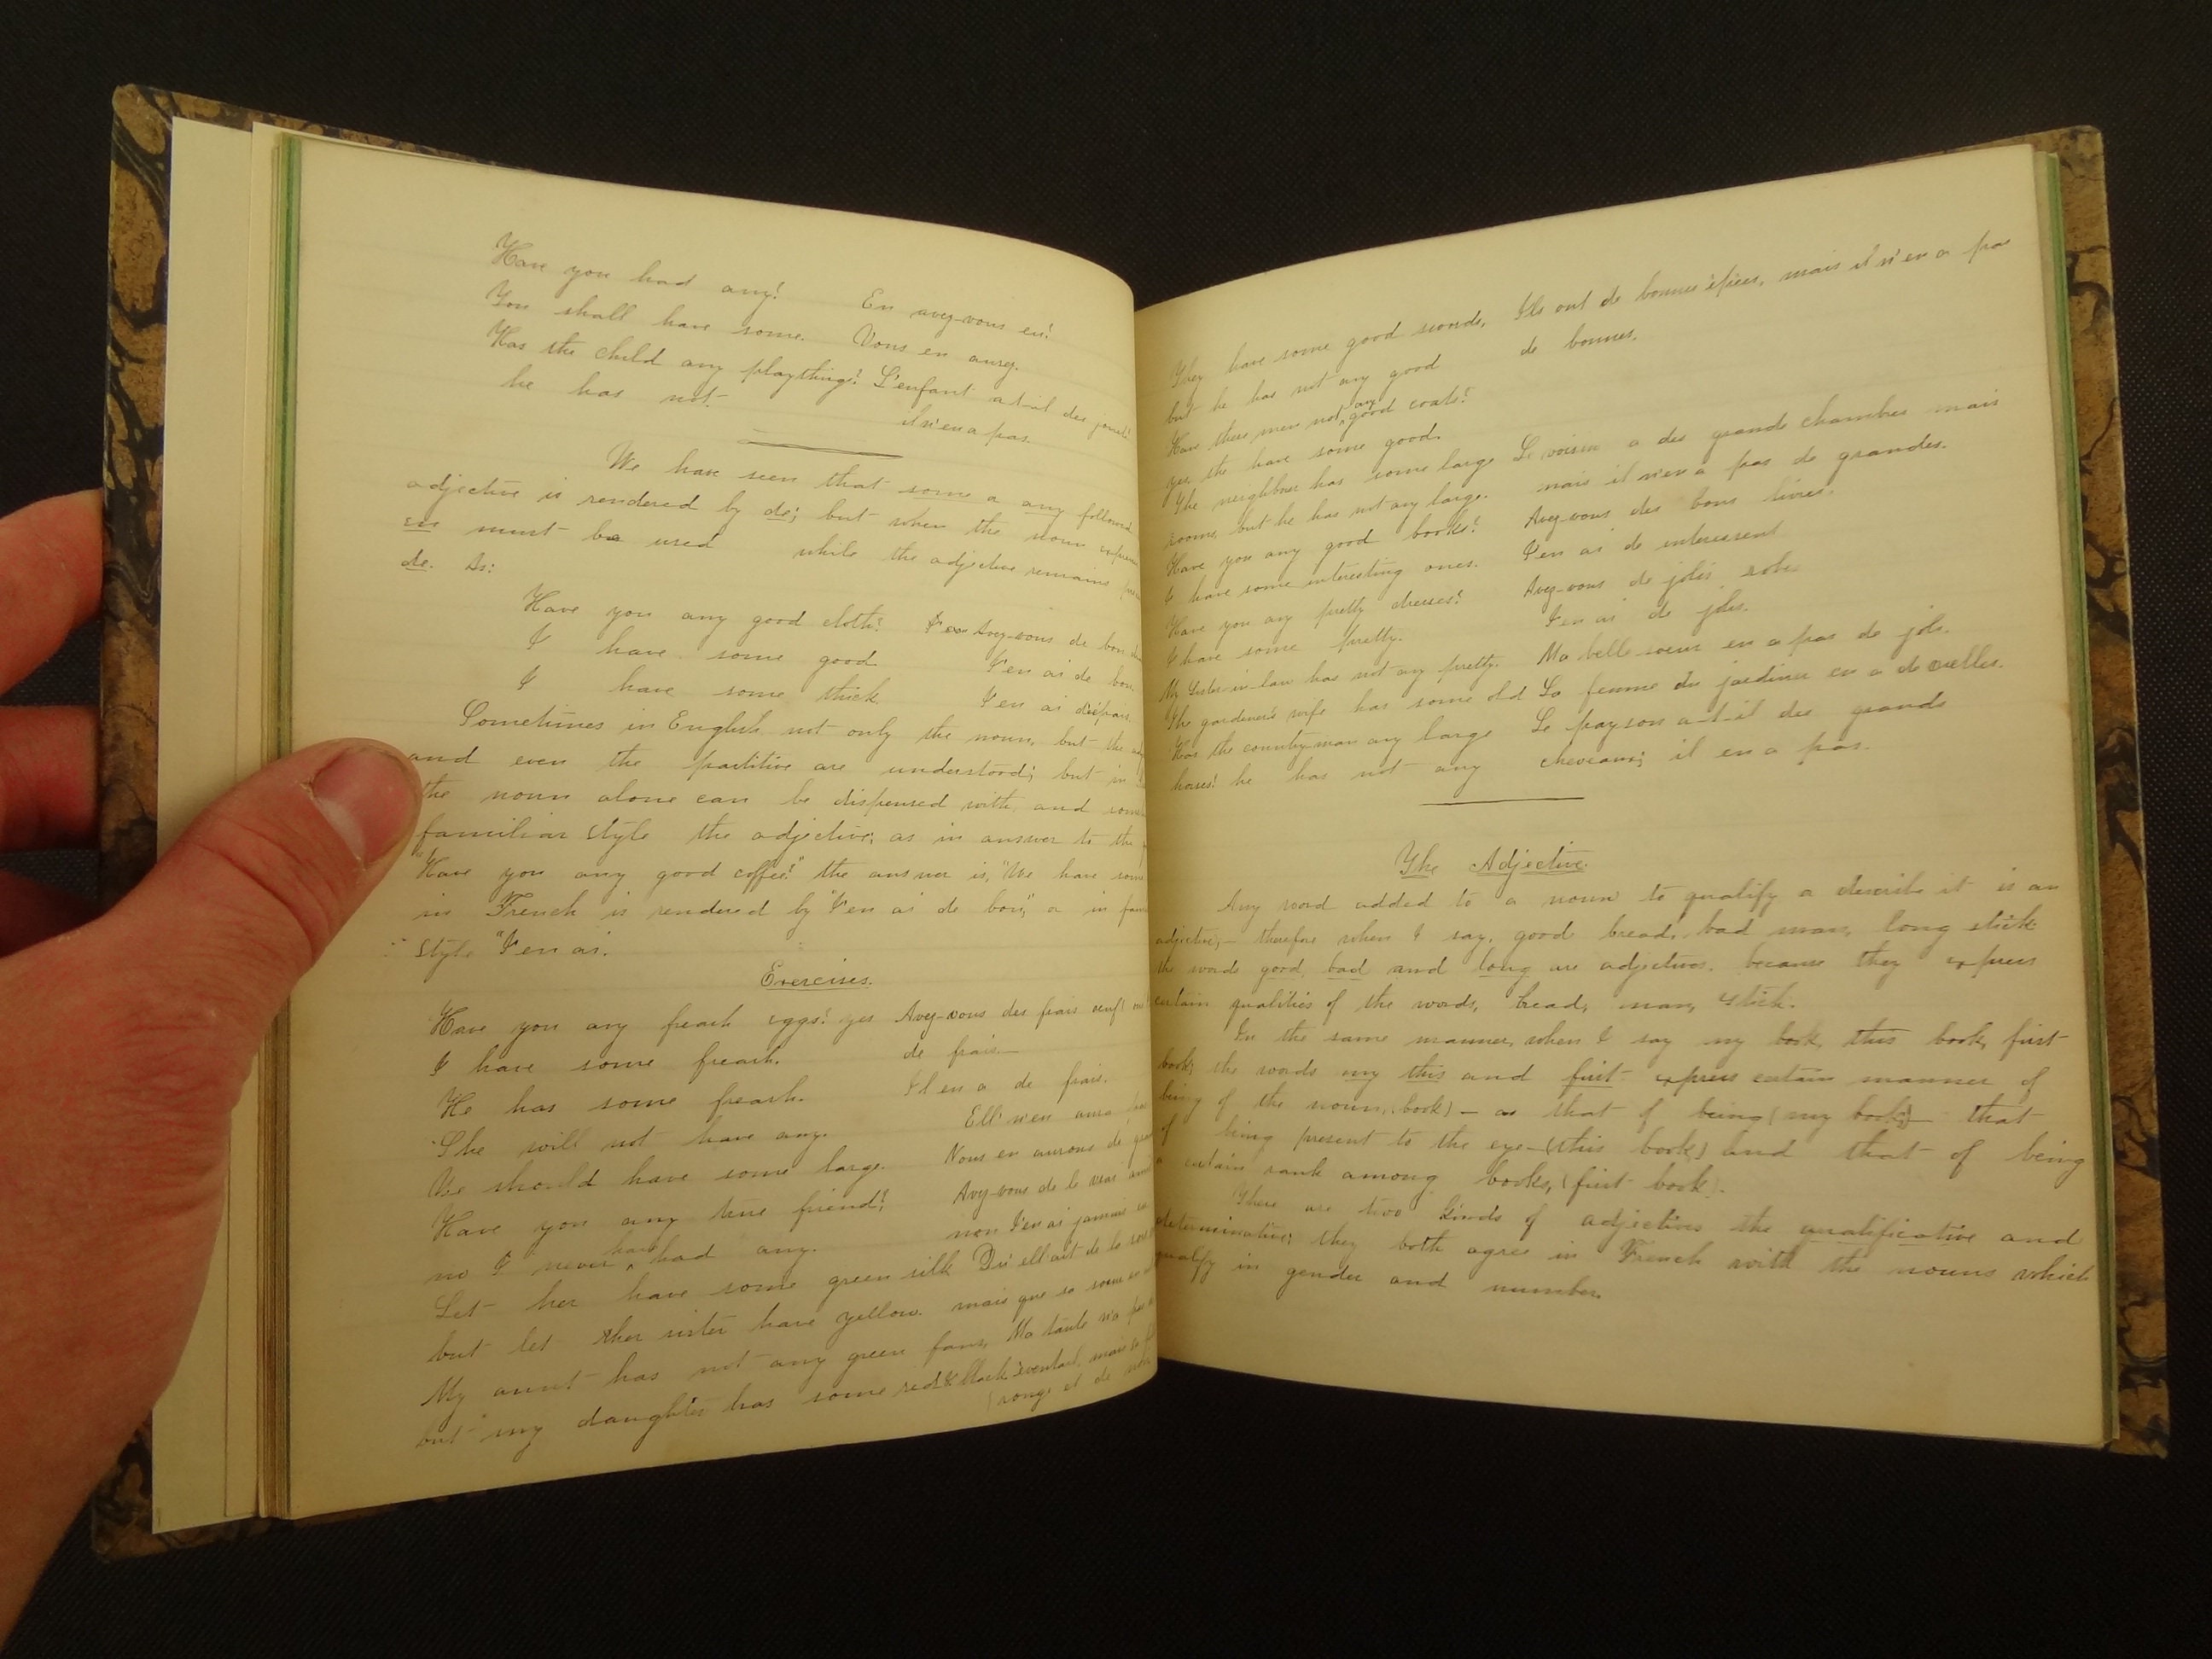 Have you had any? En avez-vous eu?
You shall have some. Vous en aurez.
Has the child any playthings? L'enfant a-t-il des jouets?
he has not. il n'en a pas
We have seen that some or any followed
adjective is rendered by de; but when the noun
en must be used while the adjective remains
de. As:
Have you any good cloth? Avez-vous de bon
I have some good J'en ai de bon
I have some thick. J'en ai d'épais.
Sometimes in English not only the noun, but the
and even the partitive are understood; but in
the noun alone can be dispensed with, and
familiar style the adjective; as in answer to the
"Have you any good coffee?" the answer is, "We have some
in French is rendered by "J'en ai de bon", or in
style "J'en ai.
Exercises.
Have you any freash eggs? yes Avez-vous des frais oeufs
I have some freash. de frais.—
He has some freash. Il en a de frais.
She will not have any. Ell n'en aura
We should have some large. Nous en aurons de
Have you any true friend? Avez-vous de le vrai
no I never have had any. non J'en ai jamais
Let her have some green silk Qu'ell ait de la
but let her sister have yellow. mais que sa soeur
My aunt has not any green fans, Ma tante n'a pas
but my daughter has some red & black éventail, mais
(rouge et de
They have some good swords, Ils ont de bonnes épées, mais il n'en a pas
but he has not any good de bonnes.
Have these men not any good coats?
yes the have some good.
The neighbour has some large Le voisin a des grands chambres mais
rooms, but he has not any large. mais il n'en a pas de grandes.
Have you any good books? Avez-vous des bons livres.
I have some interesting ones. J'en ai de interessent
Have you any pretty dresses? Avez-vous de jolis robes
I have some pretty. J'en ai de jolis.
My Sister-in-law has not any pretty. Ma belle soeur en a pas de jolis.
The gardener's wife has some old La femme du jardinier en a de
Has the country-man any large Le paysan a-t-il des grands
horses? he has not any chevaux; il en a pas.
The Adjective.
Any word added to a noun to qualify or describe it is an
adjective;— therefore when I say, good bread, bad man, long stick.
the words good, bad and long are adjectives. because they express
certain qualities of the words, bread, man, stick.
In the same manner, when I say my book, this book, first
book, the words my this and first express certain manner of
being of the noun, (book) — as that of being (my book) — that
of being present to the eye — (this book) and that of being
a certain rank among books, (first book).
There are two kinds of adjectives the qualificative and
determinative; they both agree in French with the nouns which
qualify in gender and number.